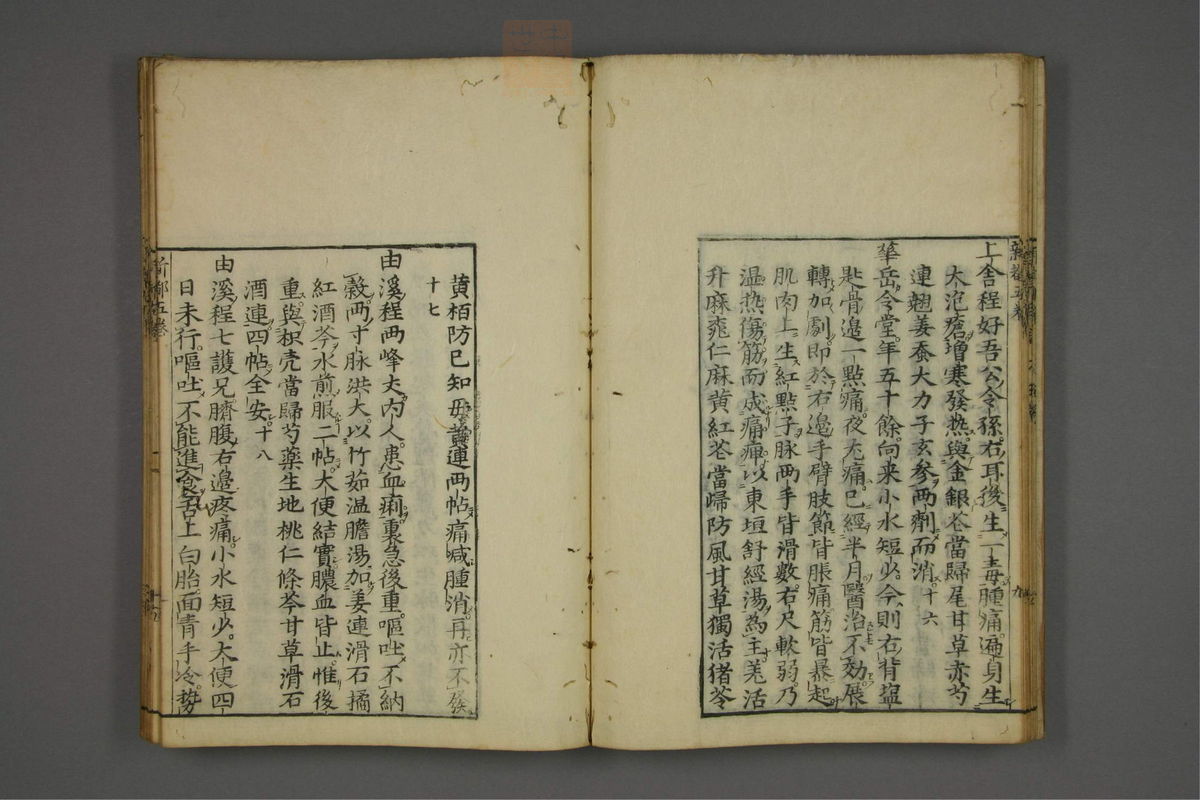 上舍程好吾公令孫右耳後生一毒腫痛遍身生
大泡瘡增寒發热與金銀花當歸尾甘草赤芍
連翹姜蚕大力子玄參两劑而消十六
華岳令堂年五十餘向来小水短少今則右背盬
匙骨邉一點痛夜尤痛已經半月醫治不効展
轉加劇即於右邉手臂肢節皆脹痛筋皆暴起
肌肉上生紅點子脉两手皆滑數右尺軟弱乃
温热傷筋而成痛痺以東垣舒經湯為主羗活
升麻薏仁麻黄紅花當歸防風甘草獨活猪苓
黄栢防已知毋黄連两帖痛减腫消再亦不發
十七
由溪程两峰丈内人患血痢裏急後重嘔吐不納
穀两寸脉洪大以竹茹温膽湯加姜連滑石橘
紅酒芩水煎服二帖大便結實膿血皆止惟後
重與枳壳當歸芍藥生地桃仁條芩甘草滑石
酒連四帖全安十八
由溪程七護兄臍腹右邉疼痛小水短少大便四
日未行嘔吐不能進食舌上白胎面青手冷勢